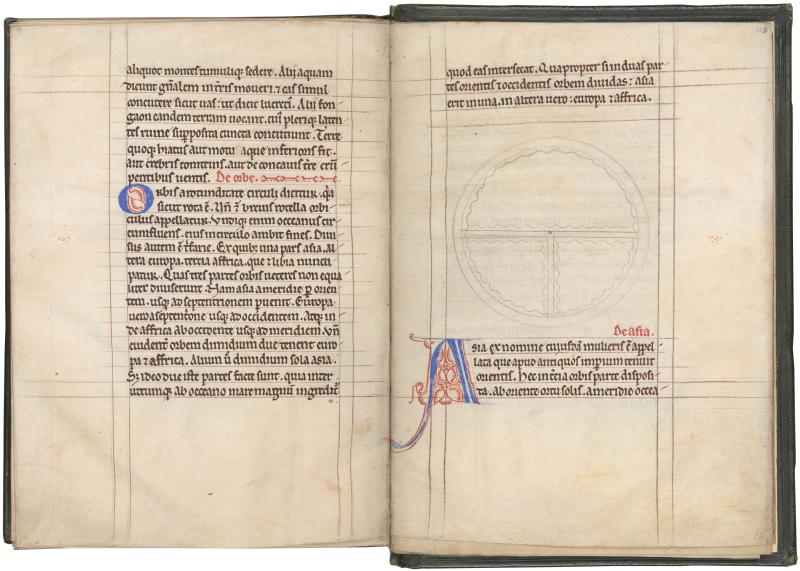 aliquot montes tumuliq; sedere. Alij aquam
dicunt gñalem in t̃ris moueri. ⁊ eas simul
concutere sicut uas. ut dicit lucreti᷒. Alij
eandem terram uocant. cui᷒ pleriq; laten
tes ruine supposita cuncta concutiunt. Terre
quoq; hiatus aut motu aque inferioris fit.
aut crebris tonitruis. aut de concauis t̃re erū
pentibus uentis. De orbe.
Orbis a rotunditate circuli dictur. q̃a
sicut rota ē. Vn̄ ⁊ breuis rotella orbi
culus appellatur. Vndiq; enim occeanus cir
cumfluens. eius in circulo ambit fines. Diui
sus autem ē t̃farie. Ex quib; una pars asia. al
tera europa. tercia affrica. que ⁊ libia nuncu
patur. Quas tres partes orbis ueteres non equa
liter diuiserunt. Nam asia a meridie ꝑ orien
tem. usq; ad septentrionem puenit. Europa
uero a septent̃one usq; ad occidentem. Atq; in
de affrica ab occidente usq; ad meridiem. Vn̄
euidenter orbem dimidium due tenent euro
pa ⁊ affrica. Alium ū dimidium sola asia.
Sz ideo due iste partes facte sunt. quia inter
utrumq; ab occeano mare magnū ingredit᷑
quod eas intersecat. Quapropter si in duas par
tes orientis ⁊ occidentis orbem diuidas: asia
erit in una. in altera uero: europa ⁊ affrica.
De asia.
Asia ex nomine cuiusdam mulieris ē appel
lata que apud antiquos imperium tenuit
orientis. Hec in t̃cia orbis parte disposi
ta. ab oriente ortu solis. a meridie occea